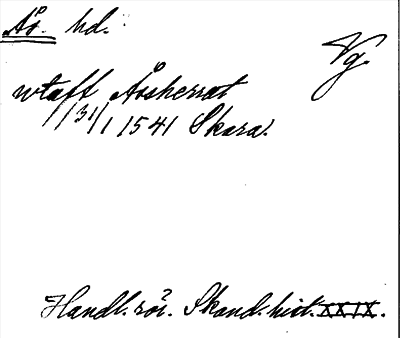 Ås. hd.
Vg.
utaff Åsherrat
1/31/1 1541 Skara.
Handl. rör. Skand. hist. XXIX.